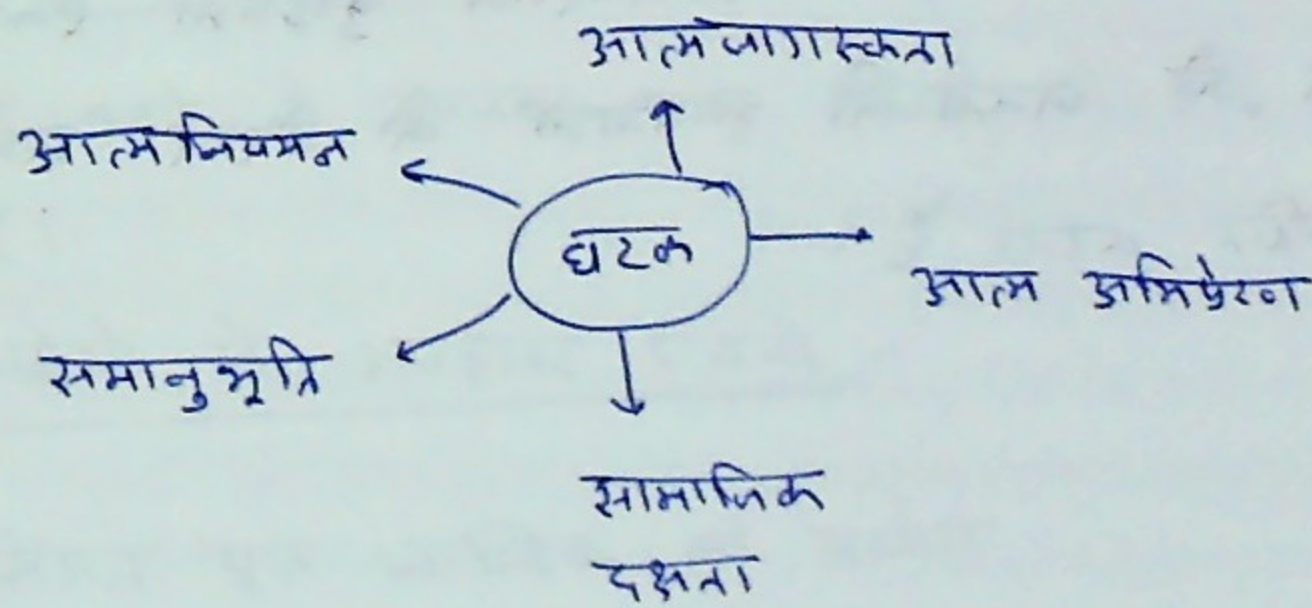 आत्मजागरूकता
आत्म नियमन
घटक
आत्म अभिप्रेरण
समानुभूति
सामाजिक
दक्षता